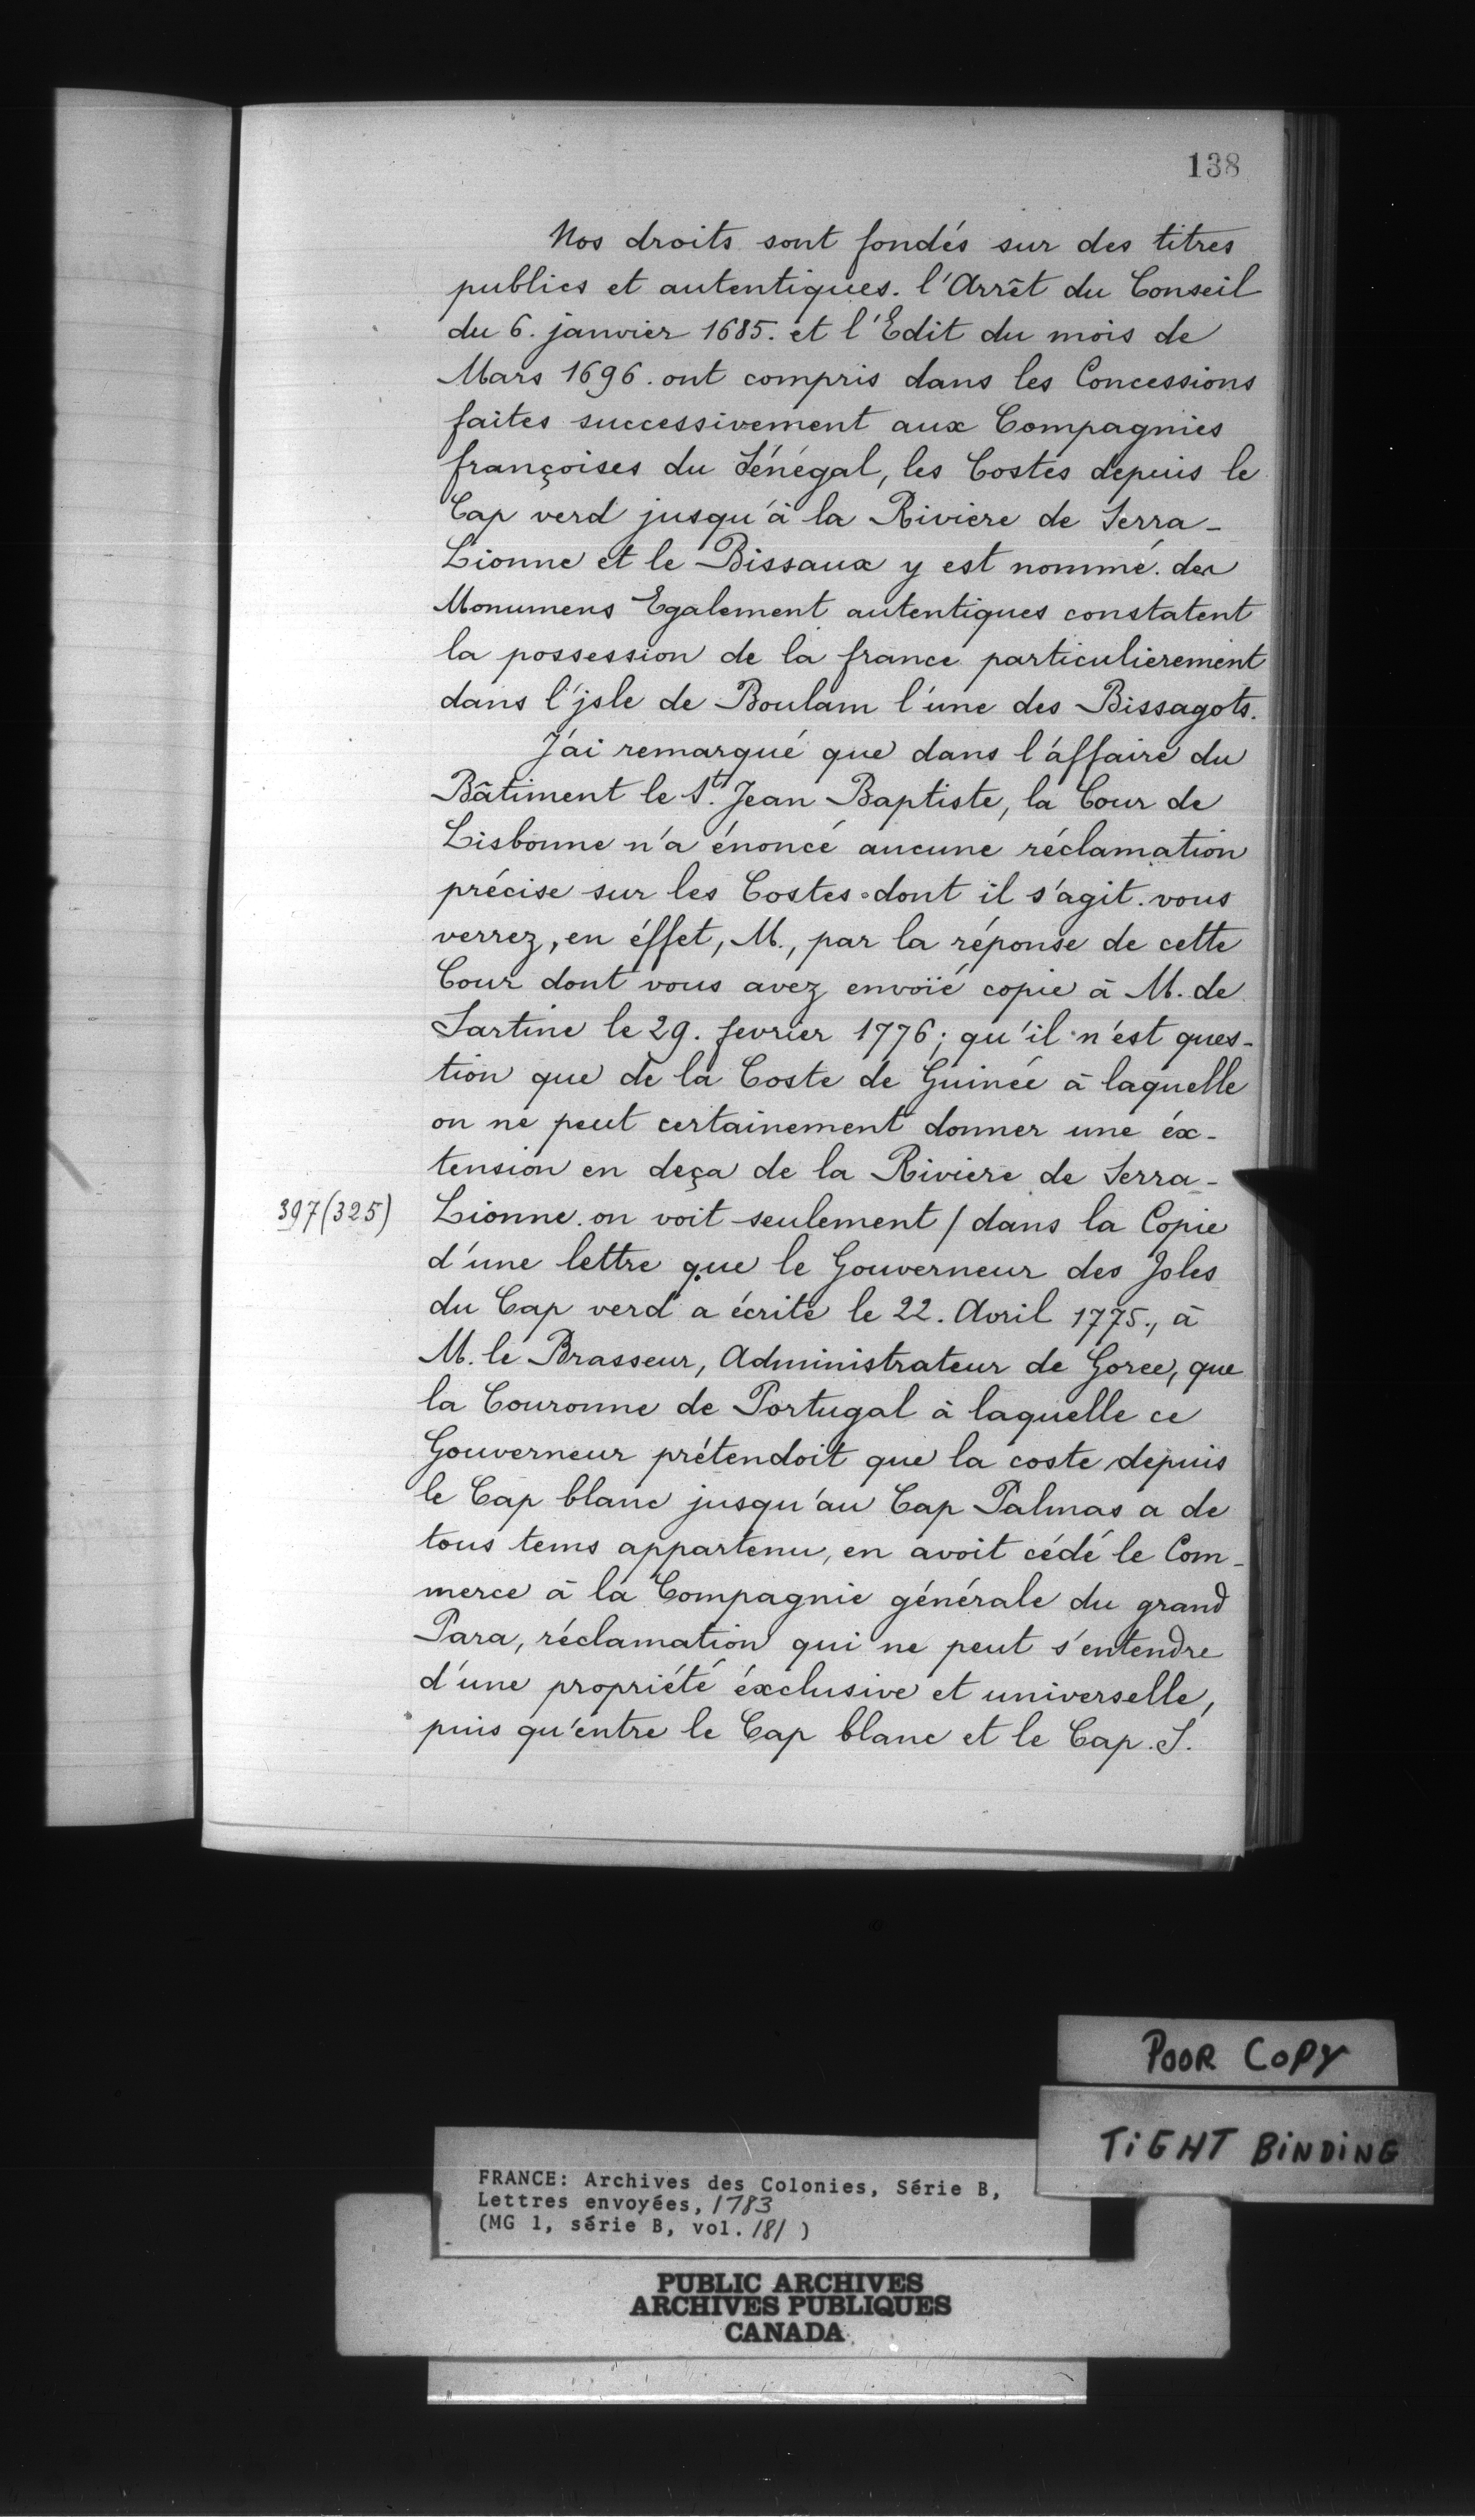 138
Nos droits sont fondés sur des titres
publics et autentiques. l'Arrêt du Conseil
du 6. janvier 1685. et l'Edit du mois de
Mars 1696. ont compris dans les Concessions
faites successivement aux Compagnies
françoises du Sénégal, les Costes depuis le
Cap verd jusqu'à la Riviere de Serra-
Lionne et le Bissaux y est nommé. des
Monumens Egalement autentiques constatent
la possession de la france particulierement
dans l'jsle de Boulam l'une des Bissagots.
J'ai remarqué que dans l'affaire du
Bâtiment le St. Jean Baptiste, la Cour de
Lisbonne n'a énoncé aucune réclamation
précise sur les Costes dont il s'agit. vous
verrez, en éffet, M., par la réponse de cette
Cour dont vous avez envoïé copie à M. de
Sartine le 29. fevrier 1776; qu'il n'est ques-
tion que de la Coste de Guinée à laquelle
on ne peut certainement donner une éx-
tension en deça de la Riviere de Serra-
397 (325) Lionne. on voit seulement / dans la Copie
d'une lettre que le Gouverneur des Jsles
du Cap verd a écrite le 22. Avril 1775., à
M. le Brasseur, Administrateur de Goree, que
la Couronne de Portugal à laquelle ce
Gouverneur prétendoit que la coste depuis
le Cap blanc jusqu'au Cap Palmas a de
tous tems appartenu, en avoit cédé le Com-
merce à la Compagnie générale du grand
Para, réclamation qui ne peut s'entendre
d'une propriété éxclusive et universelle,
puis qu'entre le Cap blanc et le Cap. S.
POOR COPY
TIGHT BINDING
FRANCE: Archives des Colonies, Série B,
Lettres envoyées, 1783
(MG 1, série B, vol. 181 )
PUBLIC ARCHIVES
ARCHIVES PUBLIQUES
CANADA